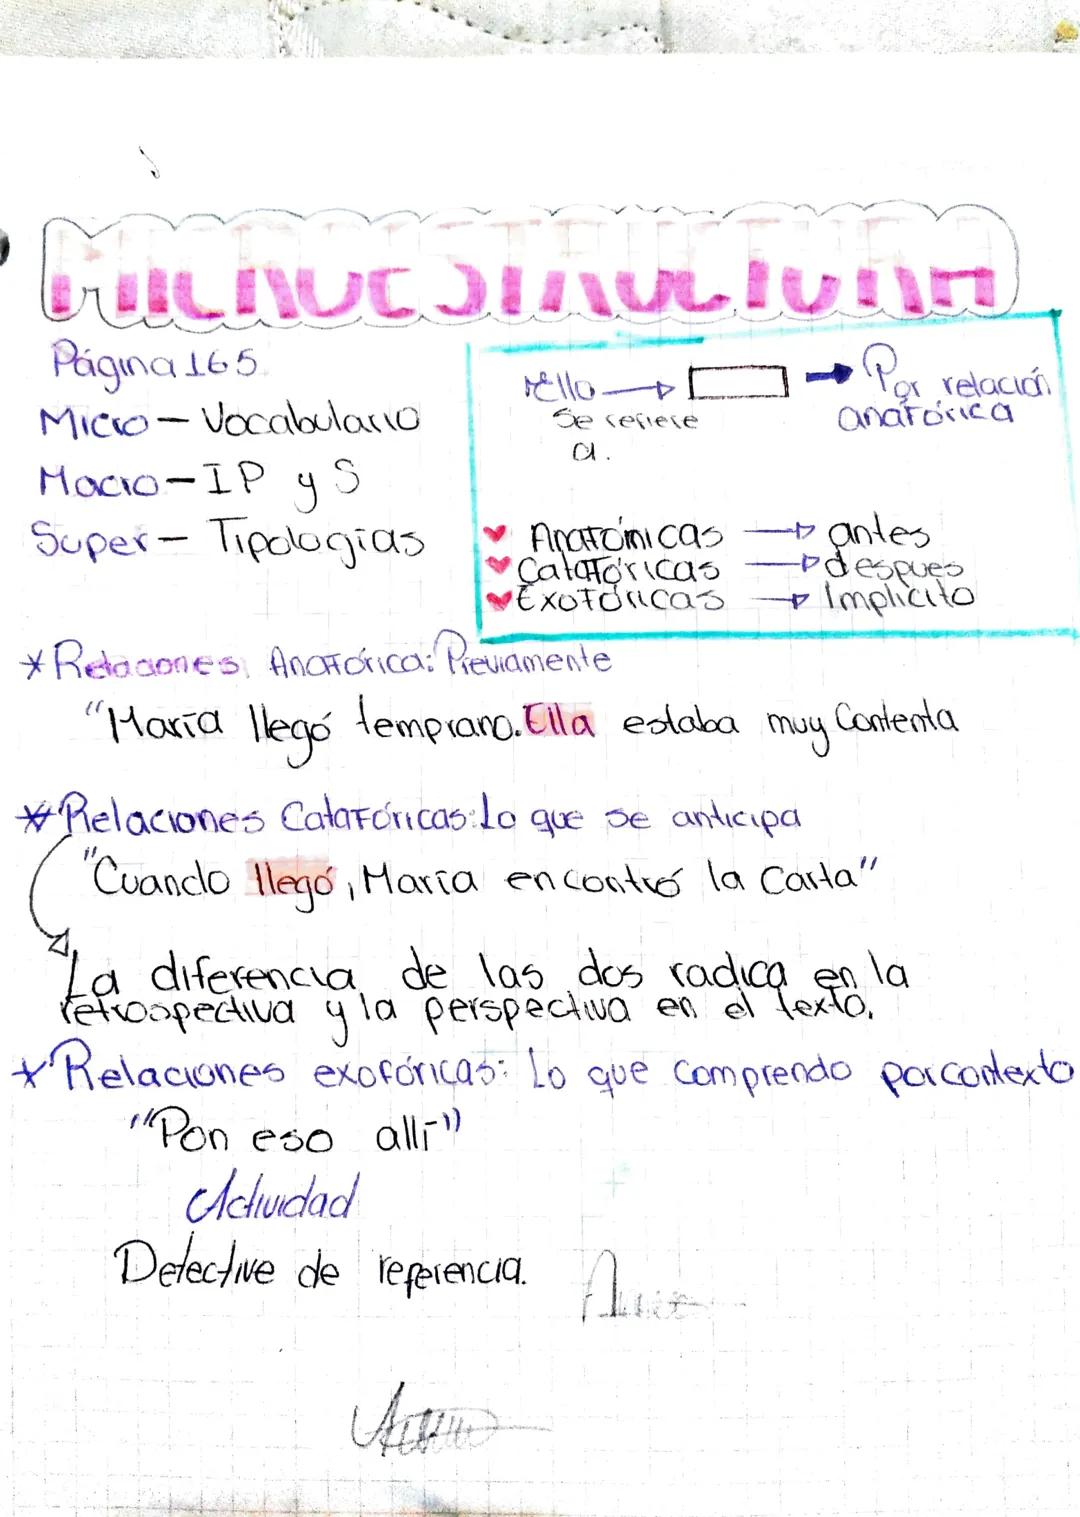 MICROESTRUCTURA
Página 165
Micro - Vocabulario
Macro - IP y S
Super - Tipologías
Ello → → Por relación
Se refiere anafórica
a.
Anafómicas → antes
Catafóricas → despues
Exofóricas → Implicito
* Relaciones Anafórica: Previamente
"María llegó temprano. Ella estaba muy Contenta
* Relaciones Catafóricas: Lo que se anticipa
"Cuando llegó, María encontró la Carta"
La diferencia de las dos radica en la
retrospectiva y la perspectiva en el texto.
* Relaciones exofóricas: Lo que Comprendo por contexto
"Pon eso allí"
Actividad
Detective de referencia.